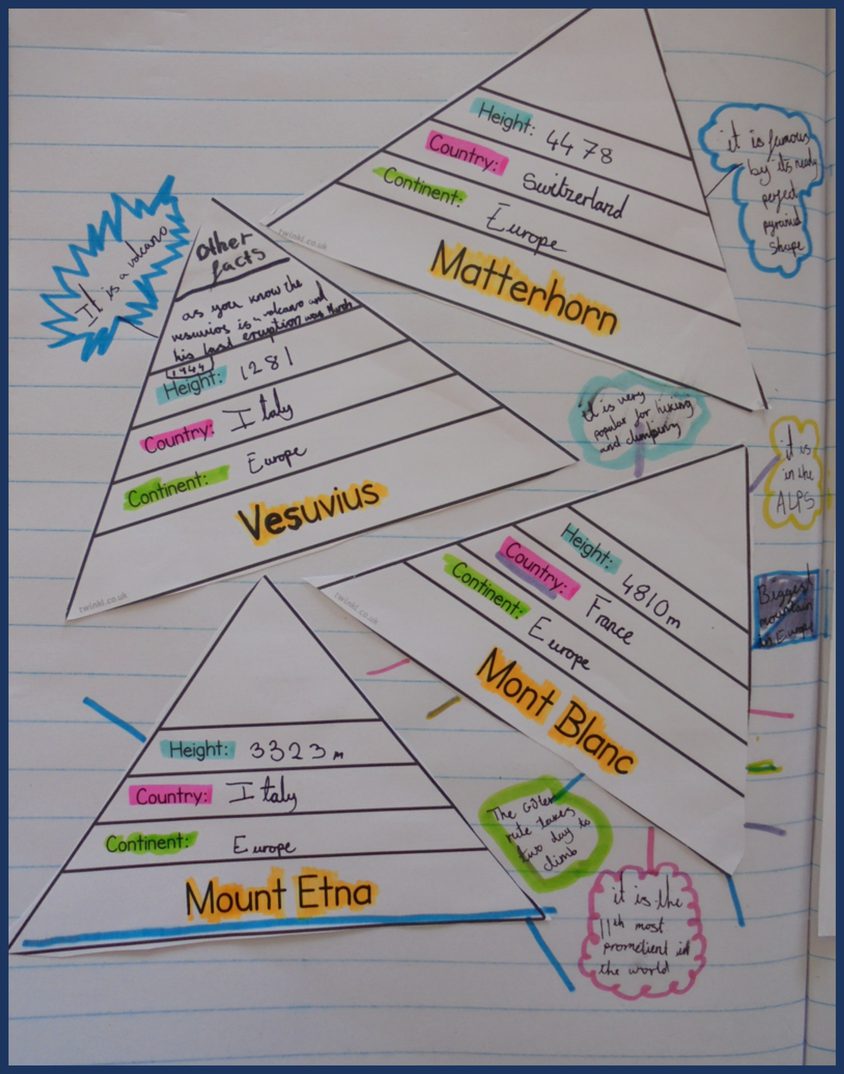 Height: 4478
Country: Switzerland
Continent: Europe
Matterhorn
twinkl.co.uk
it is famous
by its nearly
perfect
pyramid
shape
It is a volcano
Other
facts
as you know the
vesuvius is a volcano and
his last eruption was March
1944
Height: 1281
Country: Italy
Continent: Europe
Vesuvius
twinkl.co.uk
it is very
popular for hiking
and climbing
it is
in the
ALPS
Biggest
mountain
in Europe
Height: 4810m
Country: France
Continent: Europe
Mont Blanc
twinkl.co.uk
Height: 3323m
Country: Italy
Continent: Europe
Mount Etna
The
rute takes
two day to
climb
it is the
11th most
in
the world